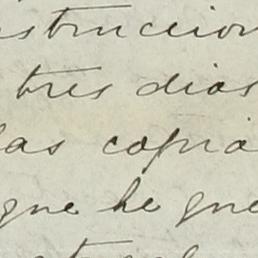 struccion
tres dias
las copia
que he que